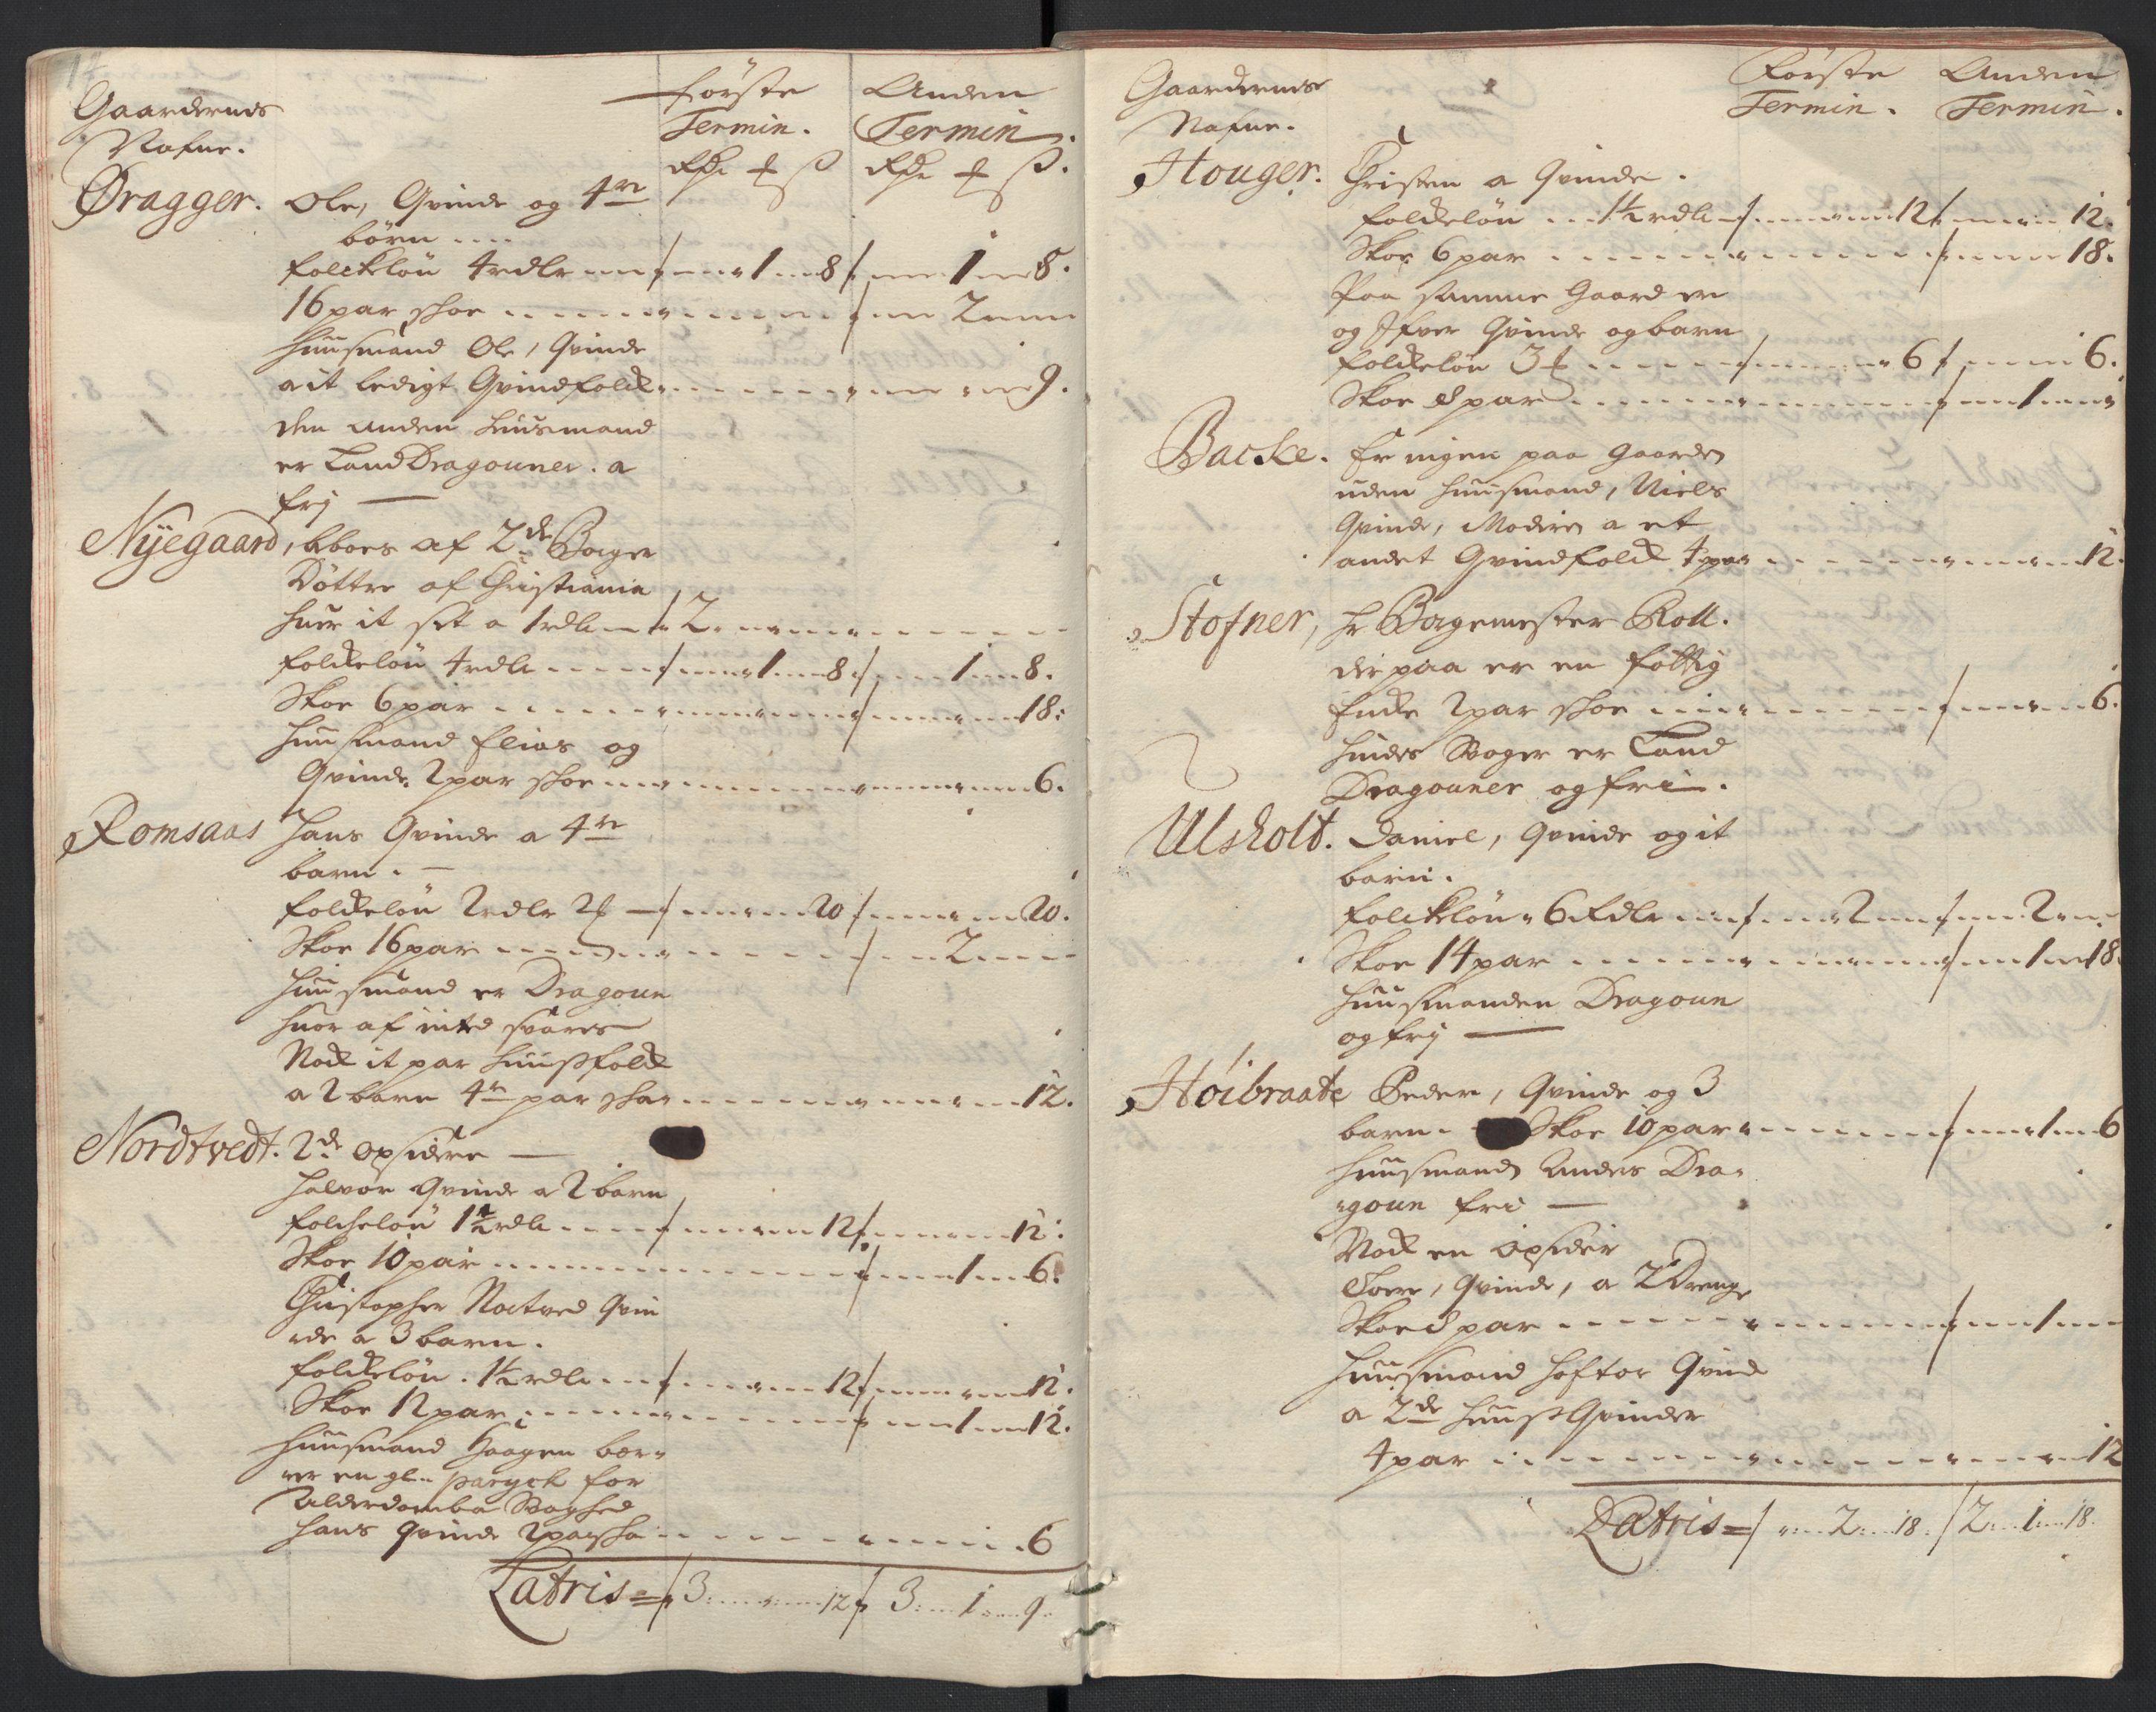 Gaardernes
Nafne.
Første Termin.
Anden Termin.
Rdr ß
Rdr ß.
Øragger. Ole, Qvinde og 4re
børn
folckløn 4 rdlr 1 8 1 8.
16 par skoe 2
huusmand Ole, Qvinde
a it ledigt Qvindfolck 9.
den anden huusmand
er Land Dragouner. a
frj
Nÿegaard, bboes af 2de Borger
Døttre af Christiania
huer it set a 1 rdlr 2
folckeløn 4 rdlr 1 8 1 8.
Skoe 6 par 18:
huusmand Elias og
Qvinde, 2 par skoe 6.
Romsaas Hans Qvinde a 4re
barn.
folckeløn 2 rdlr 2 20 20.
Skoe 16 par 2
huusmand er Dragoun
huor af inted svares
Nock it par huusfolck
a 2 barn 4re par skoe 12.
Nordtvedt. 2de opsidere
Halvor Qvinde a 2 barn
folcheløn 1½ rdlr 12 12:
Skoe 10 par 1 6.
Christopher Noctved Qvin
de a 3 barn.
folckeløn. 1½ rdlr 12 12.
Skoe 12 par 1 12.
huusmand Haagen bær
er en gl. paryck for
Alderdom Svaghed
hans Qvinde 2 par skoe 6
Latris = 3 12 3 1 9
Gaardernes
Nafne.
Første Termin.
Anden Termin.
Houger. Christen a Qvinde.
folckeløn 1½ rdlr 12 12.
Skoe 6 par 18.
Paa samme Gaard er
og Ifver Qvinde og barn
folckeløn 3 6 6.
Skoe 8 par 1
Backe. Er ingen paa Gaarden
uden huusmand, Niels
Qvinde, Moderen a et
andet Qvindfolck 4 par 12.
Stofner, Hr Borgemester Roll.
der paa er en fattig
Encke 2 par skoe 6.
hindes Svoger er Land
Dragouner og fri.
Ulsholt. Daniel, Qvinde og it
barn.
folckløn 6 Rdlr 2 2
Skoe 14 par 1 18.
huusmanden Dragoun
og frj
Høibraate Peder, Qvinde og 3
barn. Skoe 10 par 1 6
huusmand Anders Dra
goun fri
Nock en opsider
Tore, Qvinde, a 2 Drenge
Skoe 8 par 1
huusmand Hoftor Qvind
a 2de huus Qvinder
4 par 12
Latris = 2 18 2 1 18